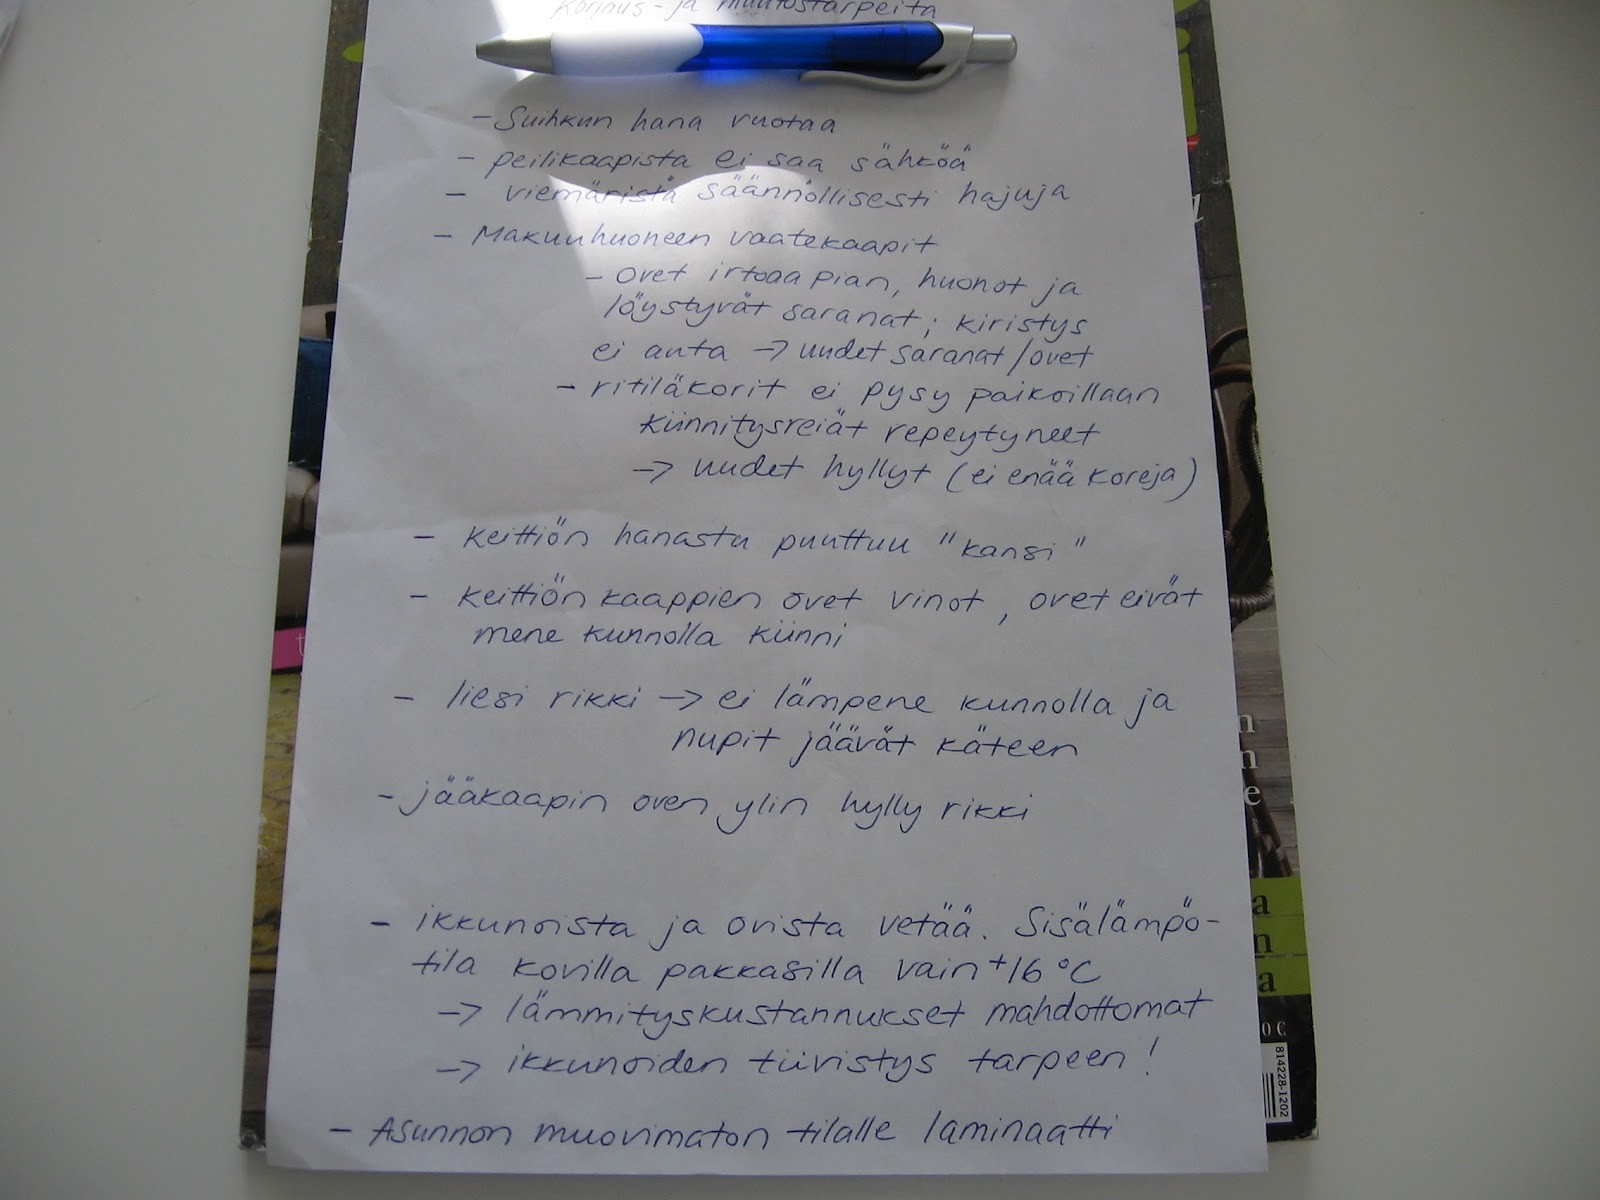 Korjaus- ja muutostarpeita
- Suihkun hana vuotaa
- peilikaapista ei saa sähköä
- viemäristä säännöllisesti hajuja
- Makuuhuoneen vaatekaapit
- ovet irtoaa pian, huonot ja
löystyvät saranat; kiristys
ei auta -> uudet saranat/ovet
- ritiläkorit ei pysy paikoillaan
kiinnitysreiät repeytyneet
-> uudet hyllyt (ei enää koreja)
- keittiön hanasta puuttuu "kansi"
- keittiön kaappien ovet vinot, ovet eivät
mene kunnolla kiinni
- liesi rikki -> ei lämpene kunnolla ja
nupit jäävät käteen
- jääkaapin oven ylin hylly rikki
- ikkunoista ja ovista vetää. Sisälämpö-
tila kovilla pakkasilla vain +16 °C
-> lämmityskustannukset mahdottomat
-> ikkunoiden tiivistys tarpeen!
- Asunnon muovimaton tilalle laminaatti
t
n
n
e
a
n
a
0 €
814228-1202